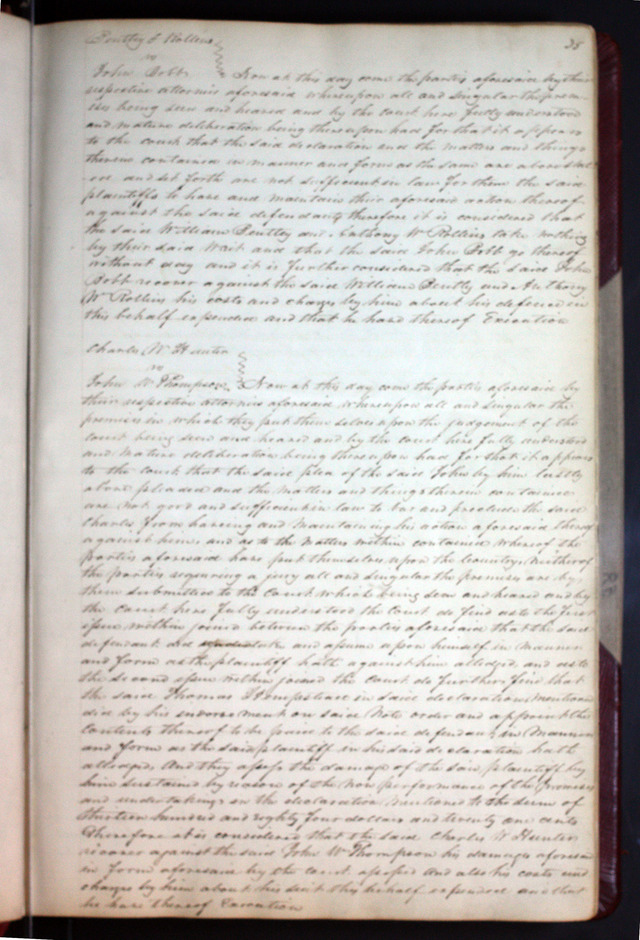 38
Bently & Rollins
vs
John Bobb Now at this day come the parties aforesaid by their
respective attornies aforesaid whereupon all and singular the prem-
ises being seen and heared and by the court here fully understood
and mature deliberation being thereupon had for that it appears
to the court that the said declaration and the matters and things
therein contained in manner and form as the same are above
and set forth are not sufficient in law for them the said
plaintiffs to have and maintain their aforesaid action thereof
against the said defendant, therefore it is considered that
the said William Bently and Anthony W Rollins take nothing
by their said writ and that the said John Bobb go thereof
without day and it is further considered that the said John
Bobb recover against the said William Bently and Anthony
W Rollins his costs and charges by him about his defence in
this behalf expended and that he have thereof Execution
Charles W Hunter
vs
John W Thompson Now at this day come the parties aforesaid by
their respective attornies aforesaid whereupon all and singular the
premises in which they put themselves upon the judgement of the
court being seen and heared and by the court here fully understood
and mature deliberation being thereupon had for that it appears
to the court that the said plea of the said John by him lastly
above pleaded and the matters and things therein contained
are not good and sufficient in law to bar and preclude the said
Charles from haveing and maintaining his action aforesaid thereof
against him. and as to the matters within contained whereof the
parties aforesaid have put themselves upon the Country, neither of
the parties requiring a jury all and singular the premises are by
them submitted to the Court which being seen and heared and by
the court here fully understood the Court do find as to the first
issue within joined between the parties aforesaid that the said
defendant did undertake and assume upon himself in manner
and form as the plaintiff hath against him alledged and as to
the second issue within joined the court do further find that
the said Thomas in said declaration mentioned
did by his endorsement on said Note order and appoint the
Contents thereof to be paid to the said defendant, in Manner
and form as the said plaintiff in his said declaration hath
alledged. And they assess the damage of the said plaintiff by
him sustained by reason of the non performance of the promises
and undertakings in the declaration mentioned to the sum of
thirteen hundred and eighty four dollars and twenty one cents
Therefore it is considered that the said Charles W Hunter
recover against the said John W Thompson his damages aforesaid
in form aforesaid by the court assessed and also his costs and
charges by him about his suit this behalf expended and that
he have thereof Execution